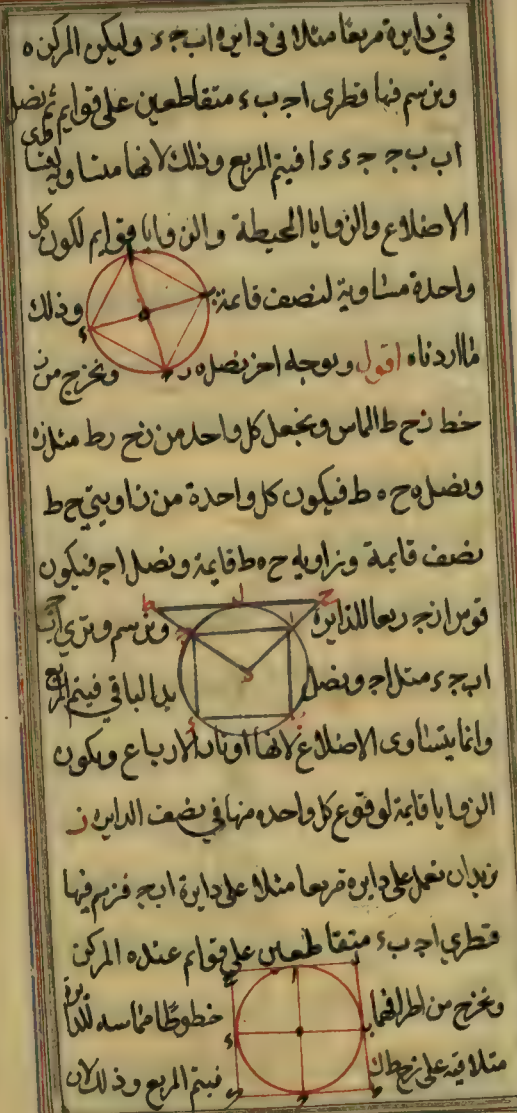 في دايرة مربعا مثلا في دايره اب جـ ء وليكن المركز ه
ونرسم فيها قطرى اجـ ب ء متقاطعين على قوايم ثم نصل
اب ب جـ جـ ء ء ا فيتم المربع وذلك لانها متساوية
الاضلاع والزوايا المحيطة والزوايا قوايم لكون كل
واحدة مساوية لنصف قائمة وذلك
ما اردناه اقول وبوجه اخر نصل ه ر ونخرج من ر
خط رح ط المماس ونجعل كل واحد من رح رط مثل
ونصل ه ح ه ط فيكون كل واحدة من زاويتي ح ط
نصف قايمة وزاوية ح ه ط قايمة ونصل اجـ فيكون
قوس ارجـ ربعا للدايرة ونرسم وترى اب
اب جـ ء مثل اجـ ونصل ب ء الباقي فيتم المربع
وانما يتساوى الاضلاع لانها اوتار الارباع ويكون
الزوايا قايمة لوقوع كل واحده منها في نصف الدايره ز
نريد ان نعمل على دايرة مربعا مثلا على دايرة اب جـ فنرسم فيها
قطري اجـ ب ء متقاطعين على قوايم عند ه المركز
ونخرج من اطرافهما خطوطا مماسه للدايرة
متلاقية على زح ط ك فيتم المربع وذلك لان